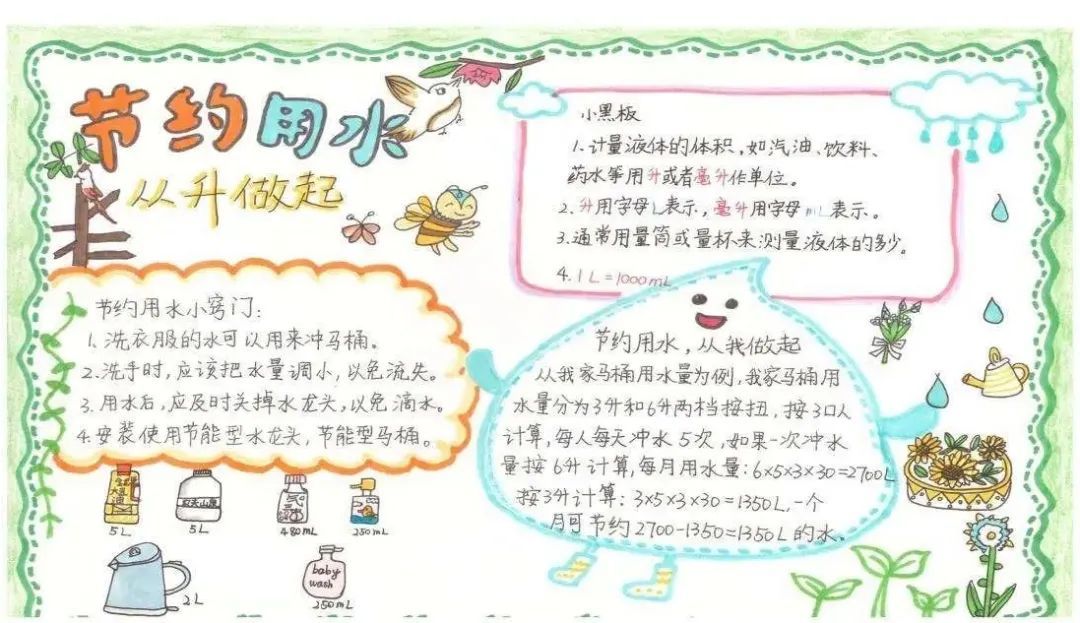 节约用水
从升做起
小黑板
1.计量液体的体积,如汽油、饮料、
药水等用升或者毫升作单位。
2.升用字母L表示,毫升用字母mL表示。
3.通常用量筒或量杯来测量液体的多少。
4.1L=1000mL
节约用水小窍门:
1.洗衣服的水可以用来冲马桶。
2.洗手时,应该把水量调小,以免流失。
3.用水后,应及时关掉水龙头,以免滴水。
4.安装使用节能型水龙头,节能型马桶。
节约用水,从我做起
从我家马桶用水量为例,我家马桶用
水量分为3升和6升两档按扭,按3口人
计算,每人每天冲水5次,如果一次冲水
量按6升计算,每月用水量:6×5×3×30=2700L
按3升计算:3×5×3×30=1350L,一个
月可节约2700-1350=1350L的水。
5L
农夫山泉
5L
480mL
250mL
2L
baby
wash
250mL